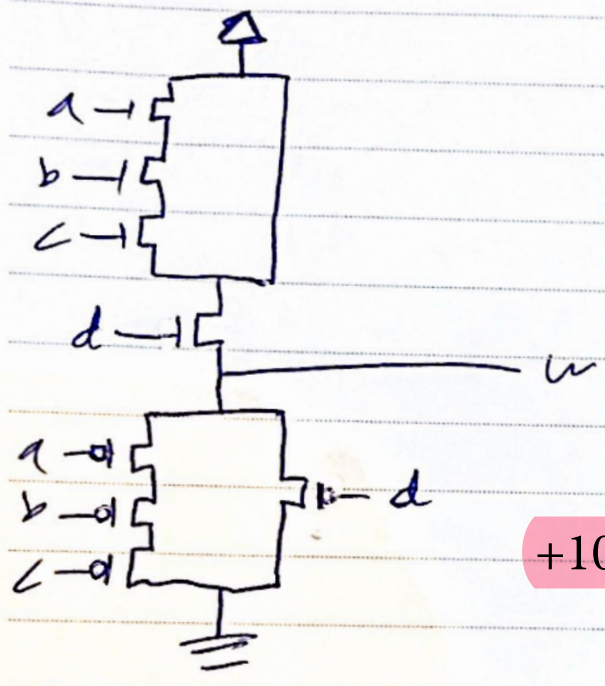 a
b
c
d
w
a
b
d
c
+10